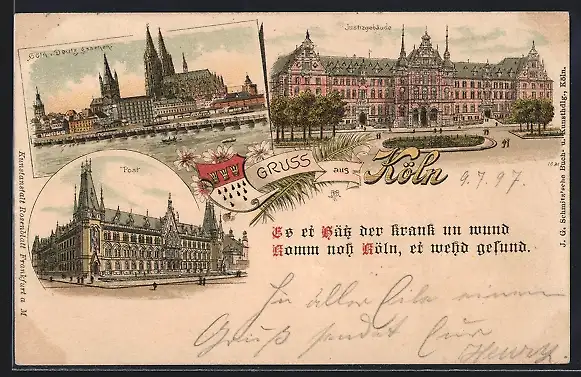 Cöln v. Deutz gesehen
Justizgebäude
Post
GRUSS aus Köln
9.7.97.
Es et Hätz der krank un wund
Komm noh Köln, et wehd gesund.
In aller Eile einen
Gruß sendet Euer
Henry
Kunstanstalt Rosenblatt Frankfurt a M
J. G. Schmitz'sche Buch- u. Kunsthdlg., Köln.